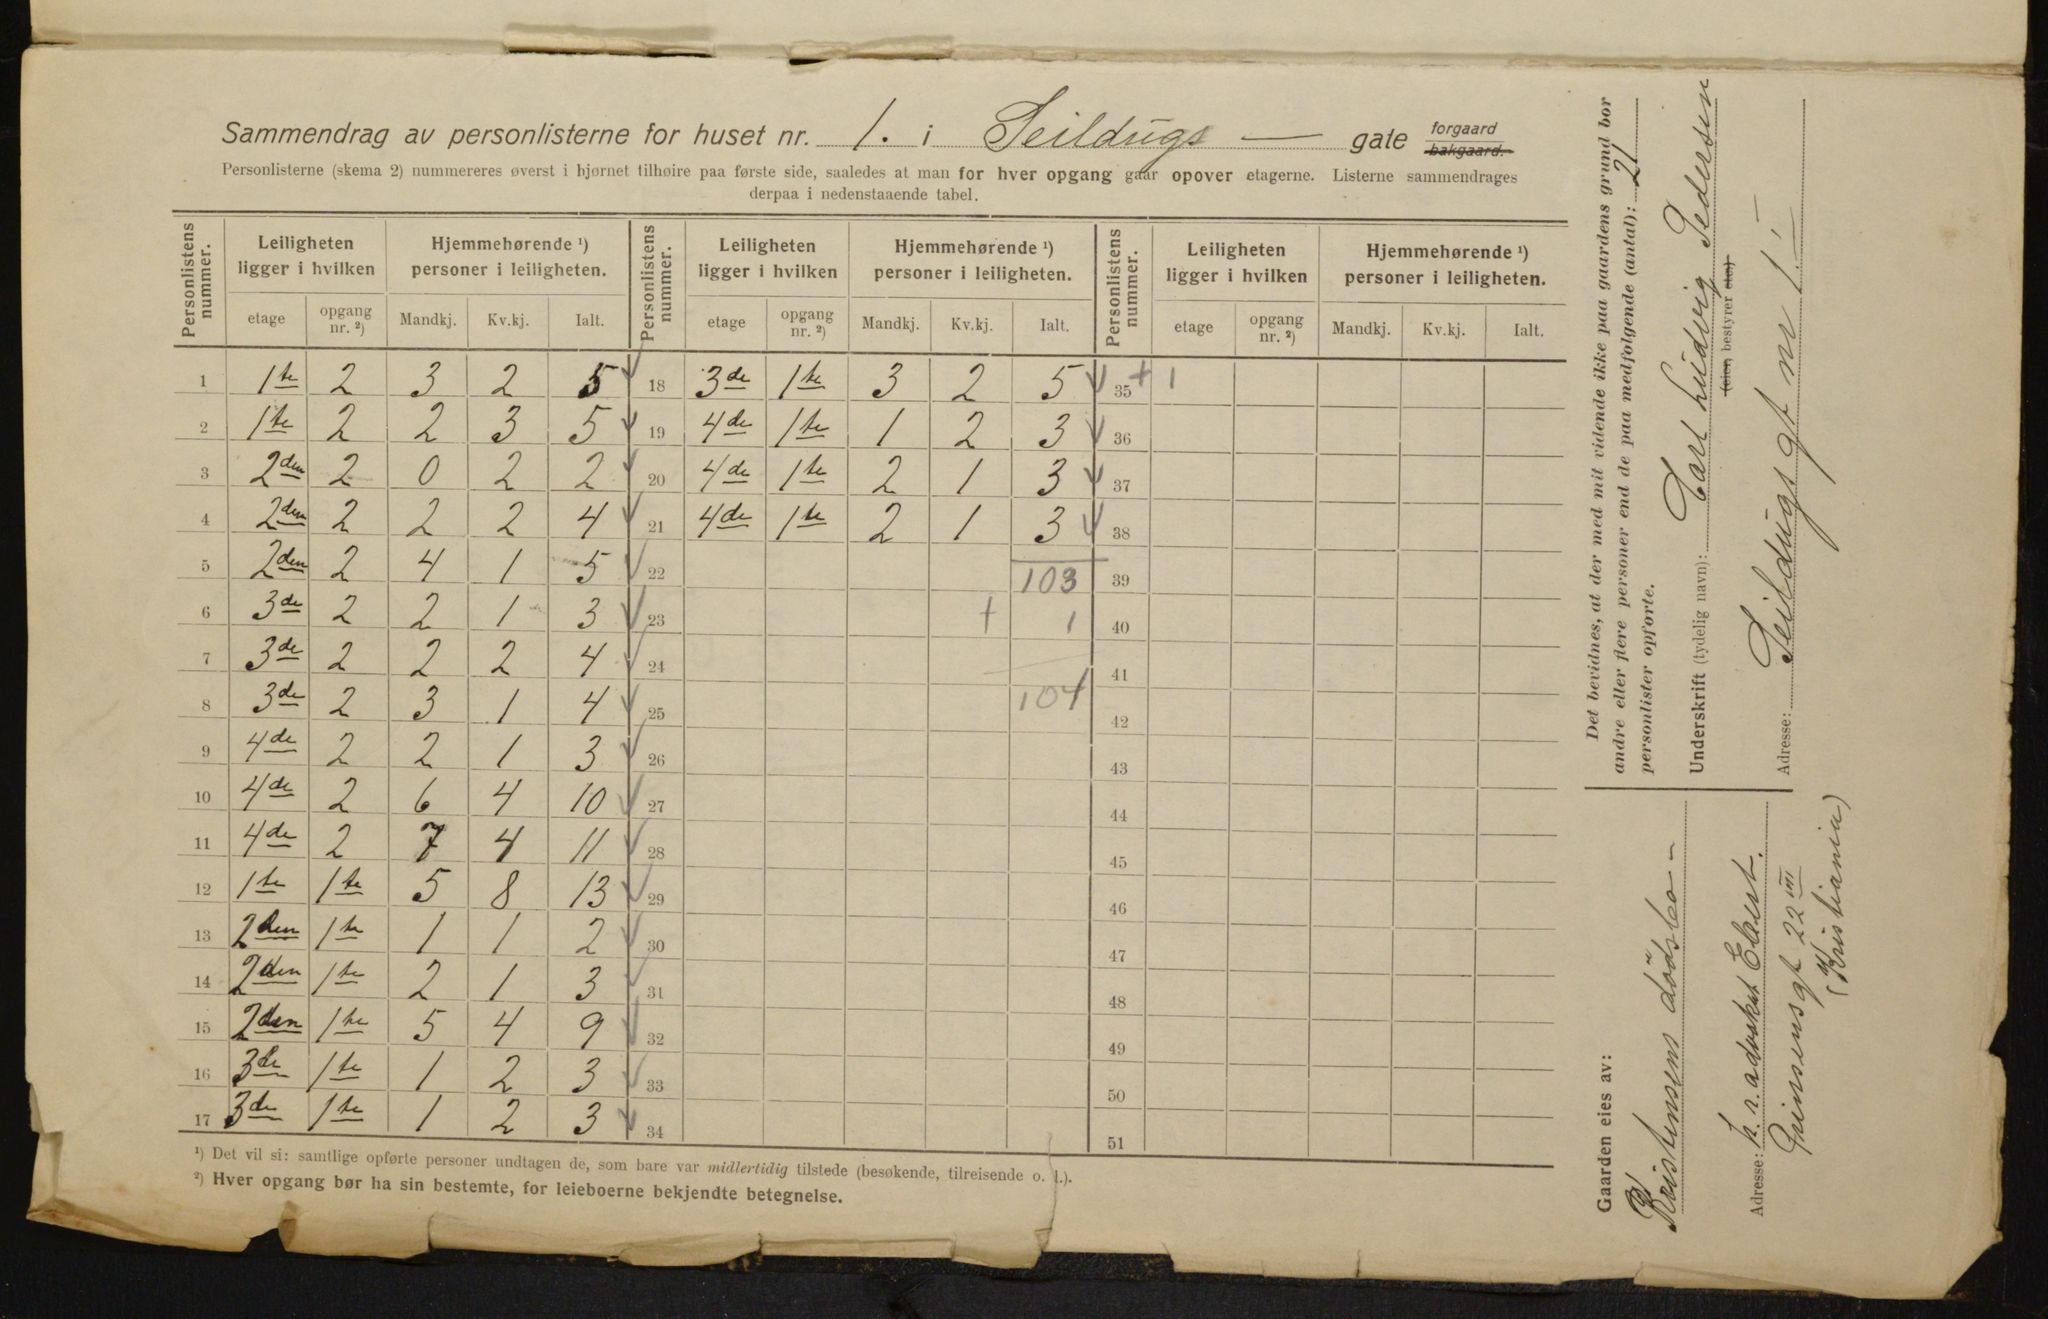 Sammendrag av personlisterne for huset nr. 1. i Seildugs — gate forgaard bakgaard.
Personlisterne (skema 2) nummereres øverst i hjørnet tilhøire paa første side, saaledes at man for hver opgang gaar opover etagerne. Listerne sammendrages
derpaa i nedenstaaende tabel.
Personlistens nummer. Leiligheten ligger i hvilken Hjemmehørende ¹) personer i leiligheten. Personlistens nummer. Leiligheten ligger i hvilken Hjemmehørende ¹) personer i leiligheten. Personlistens nummer. Leiligheten ligger i hvilken Hjemmehørende ¹) personer i leiligheten.
etage opgang nr. ²) Mandkj. Kv.kj. Ialt. etage opgang nr. ²) Mandkj. Kv.kj. Ialt. etage opgang nr. ²) Mandkj. Kv.kj. Ialt.
1 1te 2 3 2 5 18 3de 1te 3 2 5 35 + 1
2 1te 2 2 3 5 19 4de 1te 1 2 3 36
3 2den 2 0 2 2 20 4de 1te 2 1 3 37
4 2den 2 2 2 4 21 4de 1te 2 1 3 38
5 2den 2 4 1 5 22 103 39
6 3de 2 2 1 3 23 + 1 40
7 3de 2 2 2 4 24 41
8 3de 2 3 1 4 25 104 42
9 4de 2 2 1 3 26 43
10 4de 2 6 4 10 27 44
11 4de 2 7 4 11 28 45
12 1te 1te 5 8 13 29 46
13 2den 1te 1 1 2 30 47
14 2den 1te 2 1 3 31 48
15 2den 1te 5 4 9 32 49
16 3de 1te 1 2 3 33 50
17 3de 1te 1 2 3 34 51
¹) Det vil si: samtlige opførte personer undtagen de, som bare var midlertidig tilstede (besøkende, tilreisende o. l.).
²) Hver opgang bør ha sin bestemte, for leieboerne bekjendte betegnelse.
Gaarden eies av:
Kristensens dødsbo -
Adresse: h. r. advokat Elaest.
Prinsens gt 22 III
(Kristiania)
Det bevidnes, at der med mit vidende ikke paa gaardens grund bor
andre eller flere personer end de paa medfølgende (antal): 21
personlister opførte.
Underskrift (tydelig navn): Carl Ludvig Pedersen
(eien bestyrer etc.)
Adresse: Seildugs gt nr 1. —